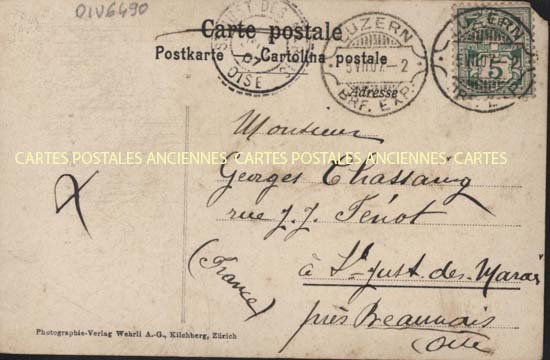 OIV6490
Carte postale
Postkarte Cartolina postale
OISE
LUZERN
5 VII.07.-2
BRF. EXP.
LUZERN
5 VII.07.
5
Adresse
Monsieur
CARTES POSTALES ANCIENNES CARTES POSTALES ANCIENNES CARTES
Georges Chassaing
rue J. J. Fénot
(France)
à St Just. des. Marais
près Beauvais
Oise
Photographie-Verlag Wehrli A.-G., Kilchberg, Zürich